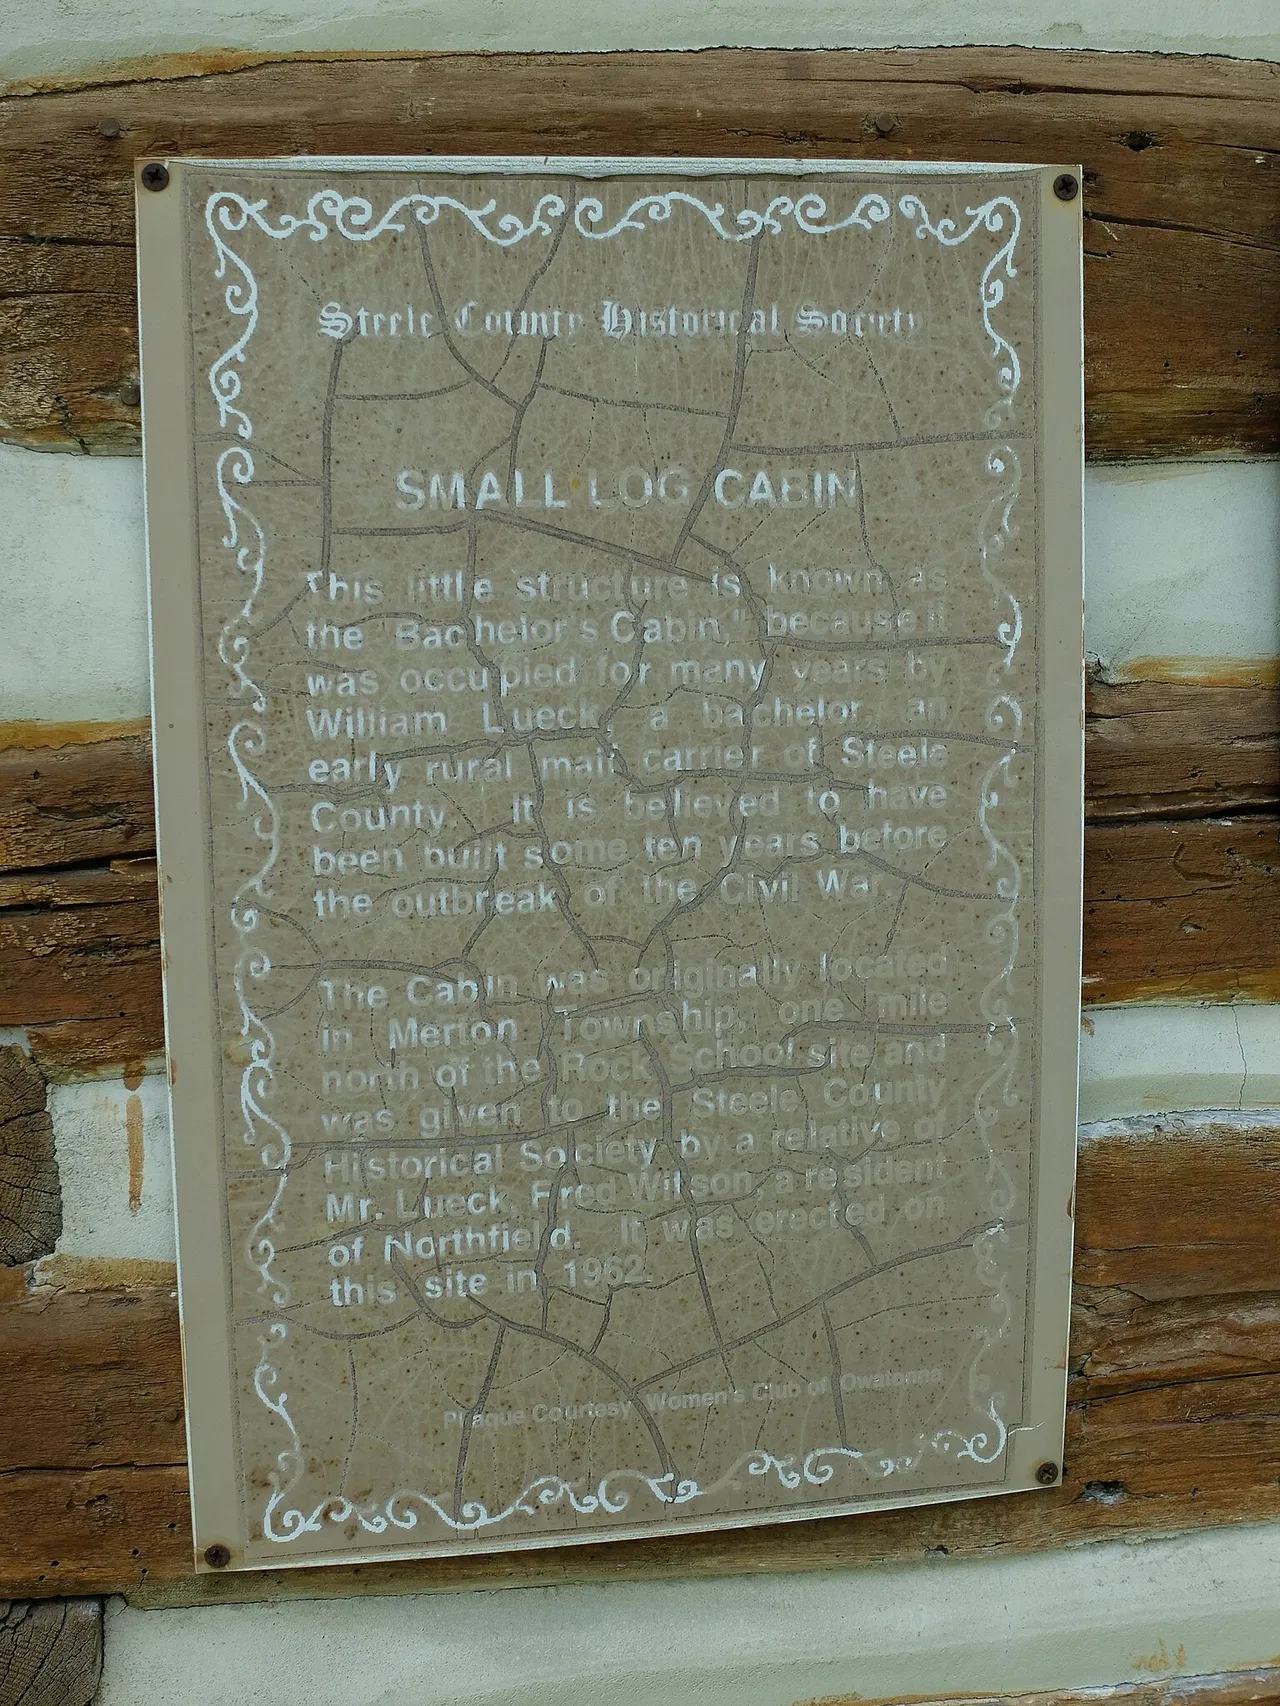 Steele County Historical Society
SMALL LOG CABIN
This little structure is known as
the "Bachelor's Cabin," because it
was occupied for many years by
William Lueck, a bachelor, an
early rural mail carrier of Steele
County. It is believed to have
been built some ten years before
the outbreak of the Civil War.
The Cabin was originally located
in Merton Township, one mile
north of the Rock School site and
was given to the Steele County
Historical Society by a relative of
Mr. Lueck, Fred Wilson, a resident
of Northfield. It was erected on
this site in 1962.
Plaque Courtesy Women's Club of Owatonna